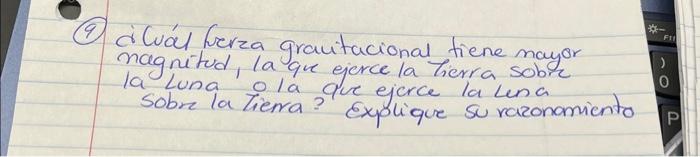 9 ¿Cuál fuerza gravitacional tiene mayor
magnitud, la que ejerce la Tierra sobre
la Luna o la que ejerce la Luna
sobre la Tierra? Explique su razonamiento
F11
)
0
P